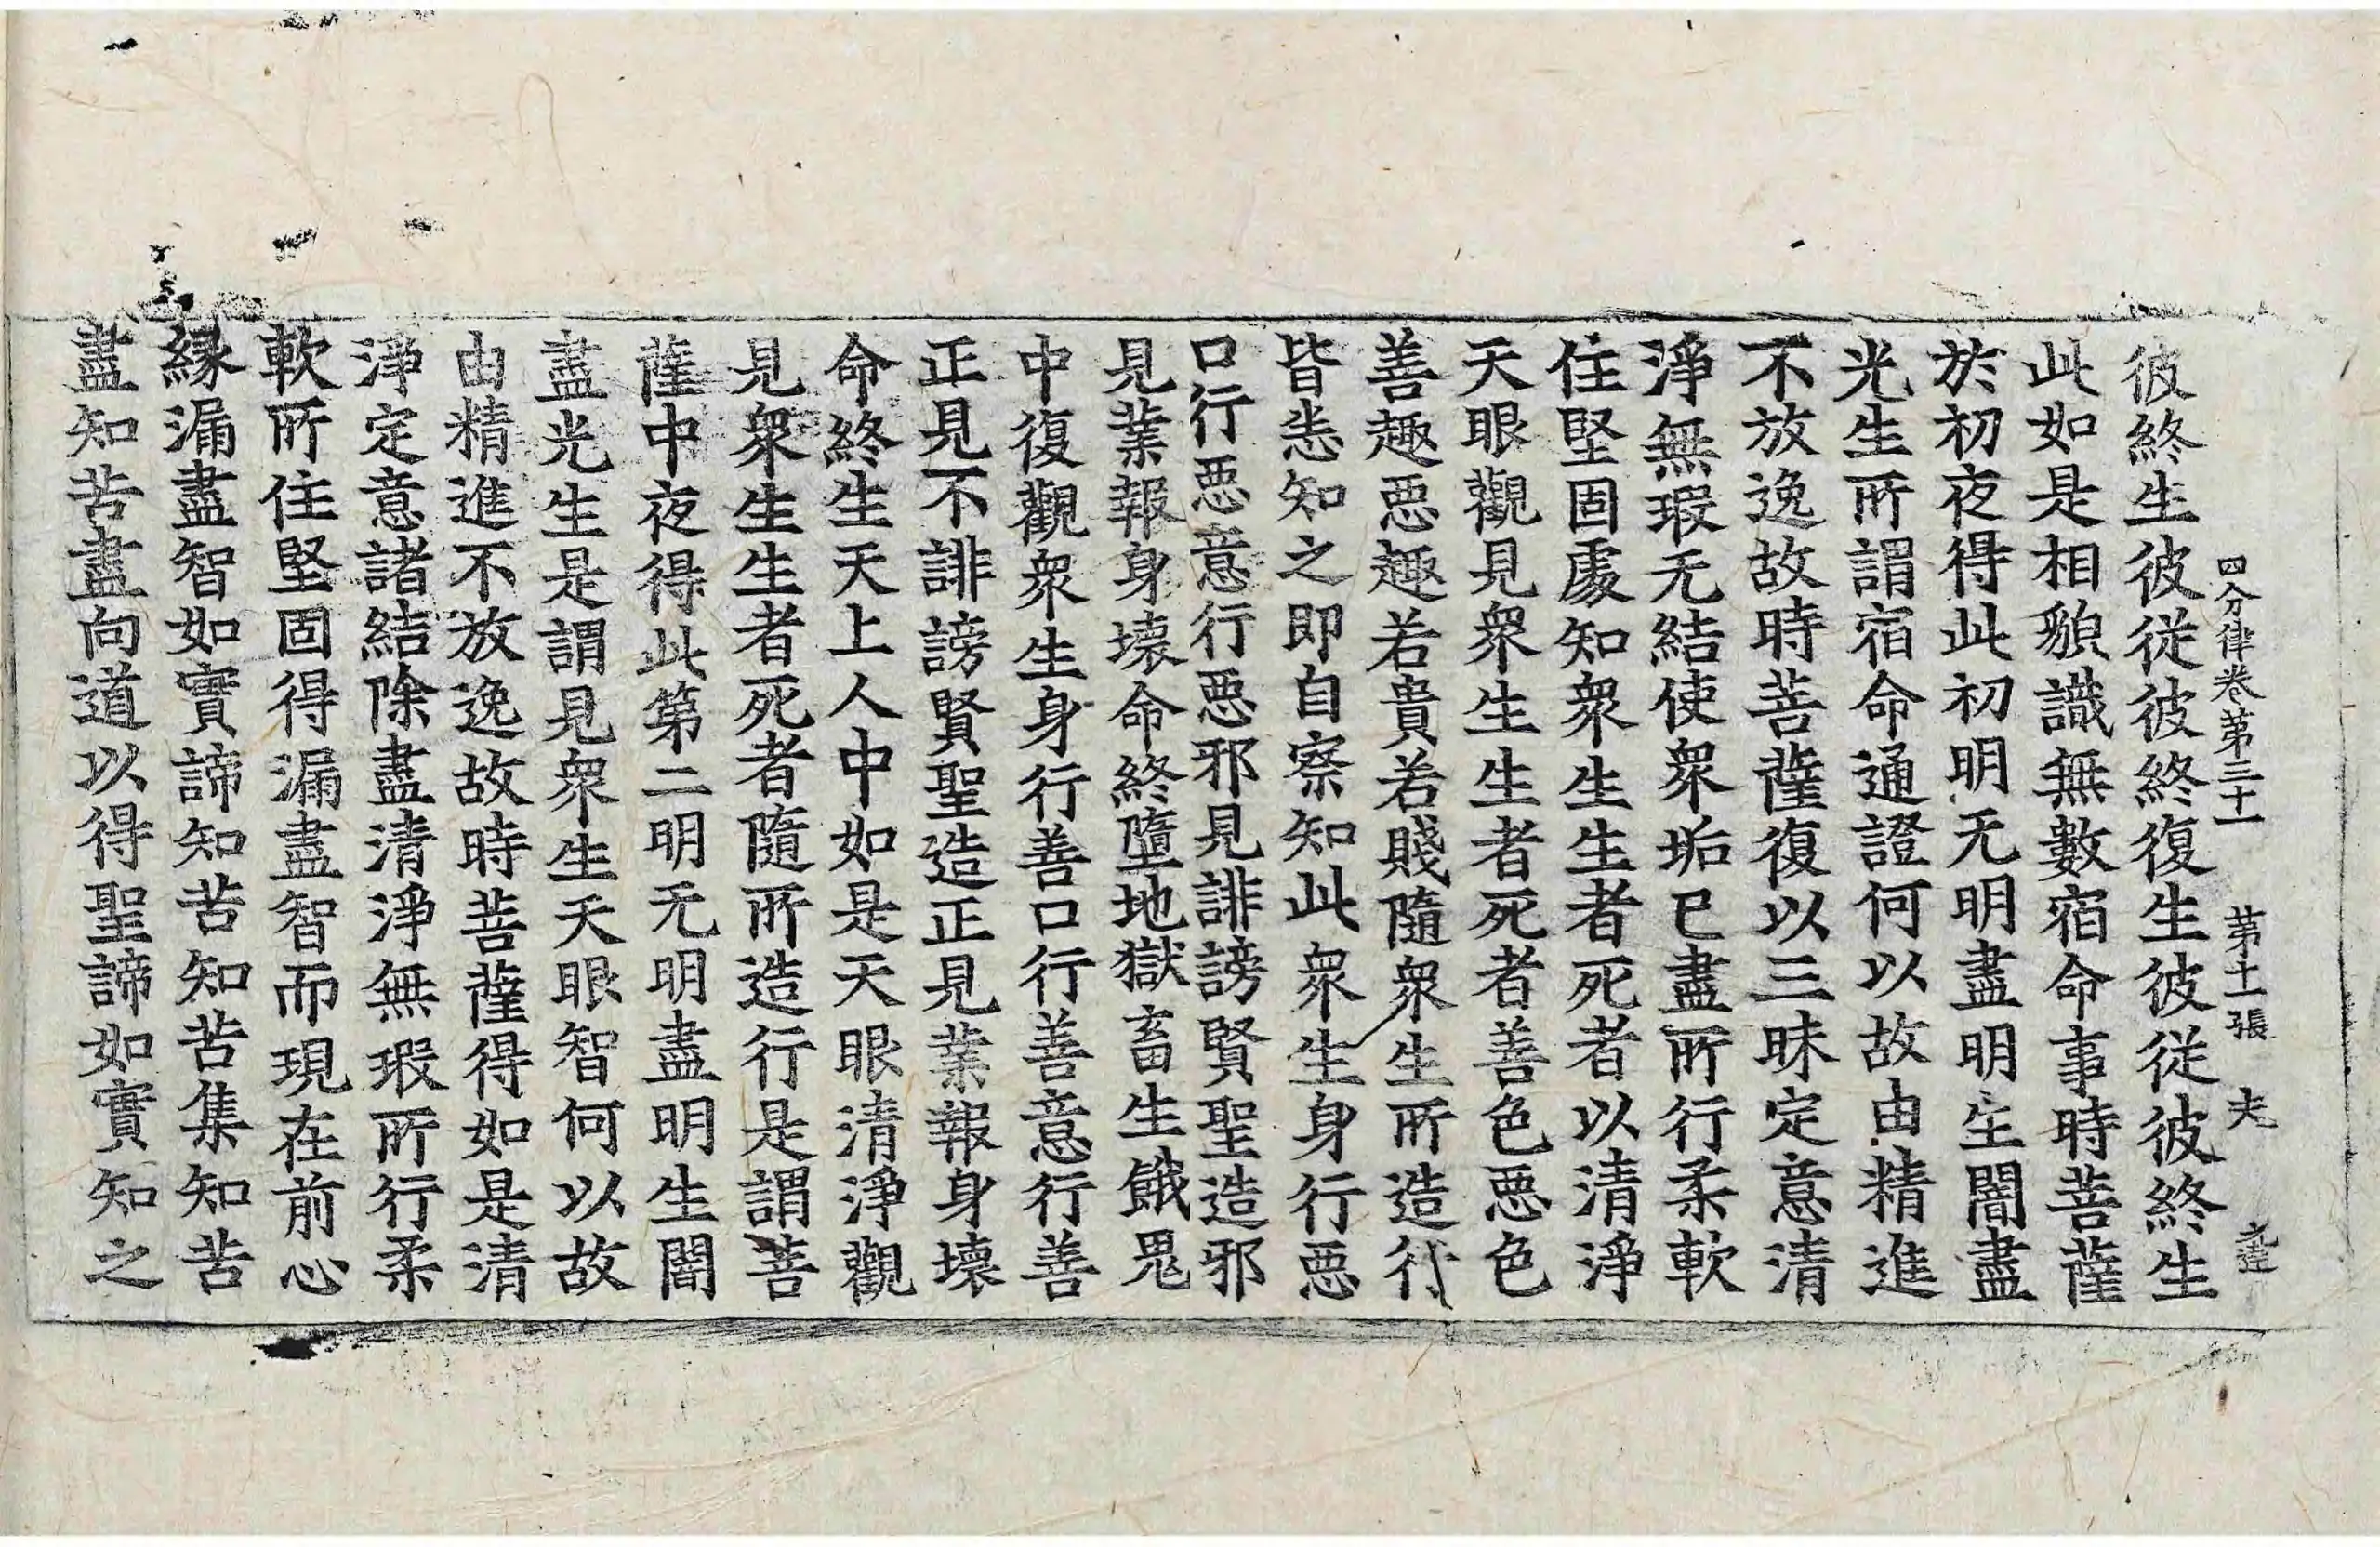 四分律卷第三十一 第十一張 夫
彼終生彼從彼終復生彼從彼終生
此如是相貌識無數宿命事時菩薩
於初夜得此初明无明盡明生闇盡
光生所謂宿命通證何以故由精進
不放逸故時菩薩復以三昧定意清
淨無瑕无結使衆垢已盡所行柔軟
住堅固處知衆生生者死者以清淨
天眼觀見衆生生者死者善色惡色
善趣惡趣若貴若賤隨衆生所造行
皆悉知之即自察知此衆生身行惡
口行惡意行惡邪見誹謗賢聖造邪
見業報身壞命終墮地獄畜生餓鬼
中復觀衆生身行善口行善意行善
正見不誹謗賢聖造正見業報身壞
命終生天上人中如是天眼清淨觀
見衆生生者死者隨所造行是謂菩
薩中夜得此第二明无明盡明生闇
盡光生是謂見衆生天眼智何以故
由精進不放逸故時菩薩得如是清
淨定意諸結除盡清淨無瑕所行柔
軟所住堅固得漏盡智而現在前心
緣漏盡智如實諦知苦知苦集知苦
盡知苦盡向道以得聖諦如實知之